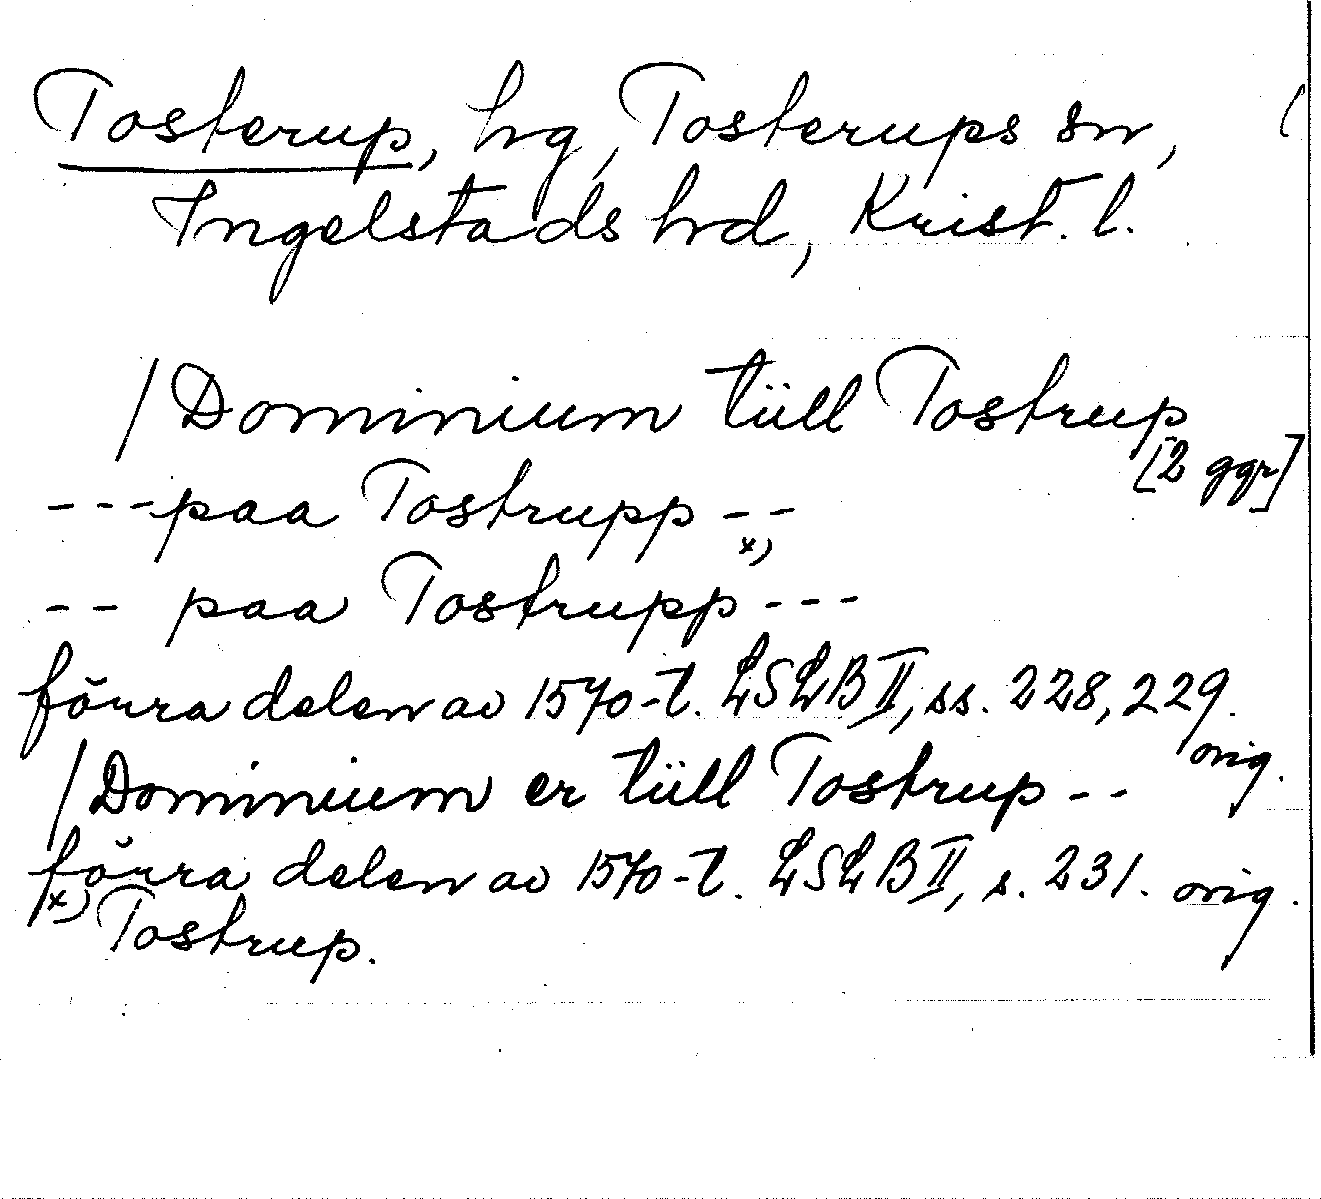 Tosterup, hg, Tosterups sn,
Ingelstads hd, Krist. l.
/Dominium tüll Tostrup
[2 ggr]
---paa Tostrupp --
x)
-- paa Tostrupp ---
förra delen av 1570-t. LSLB II, ss. 228, 229.
orig.
/Dominium er tüll Tostrup --
förra delen av 1570-t. LSLB II, s. 231. orig.
x) Tostrup.